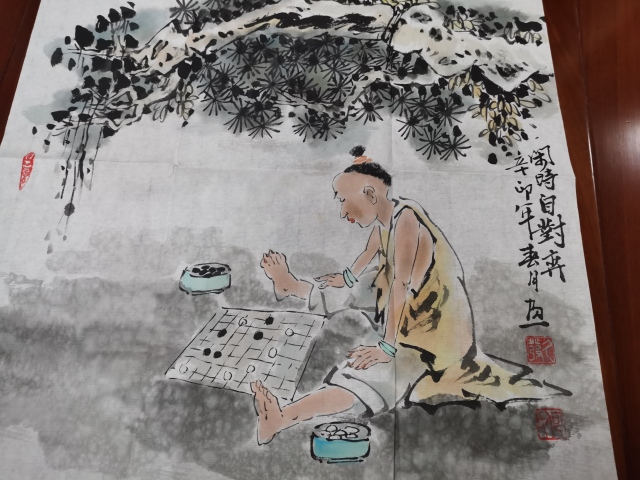 閑時自對弈
辛卯年春月画